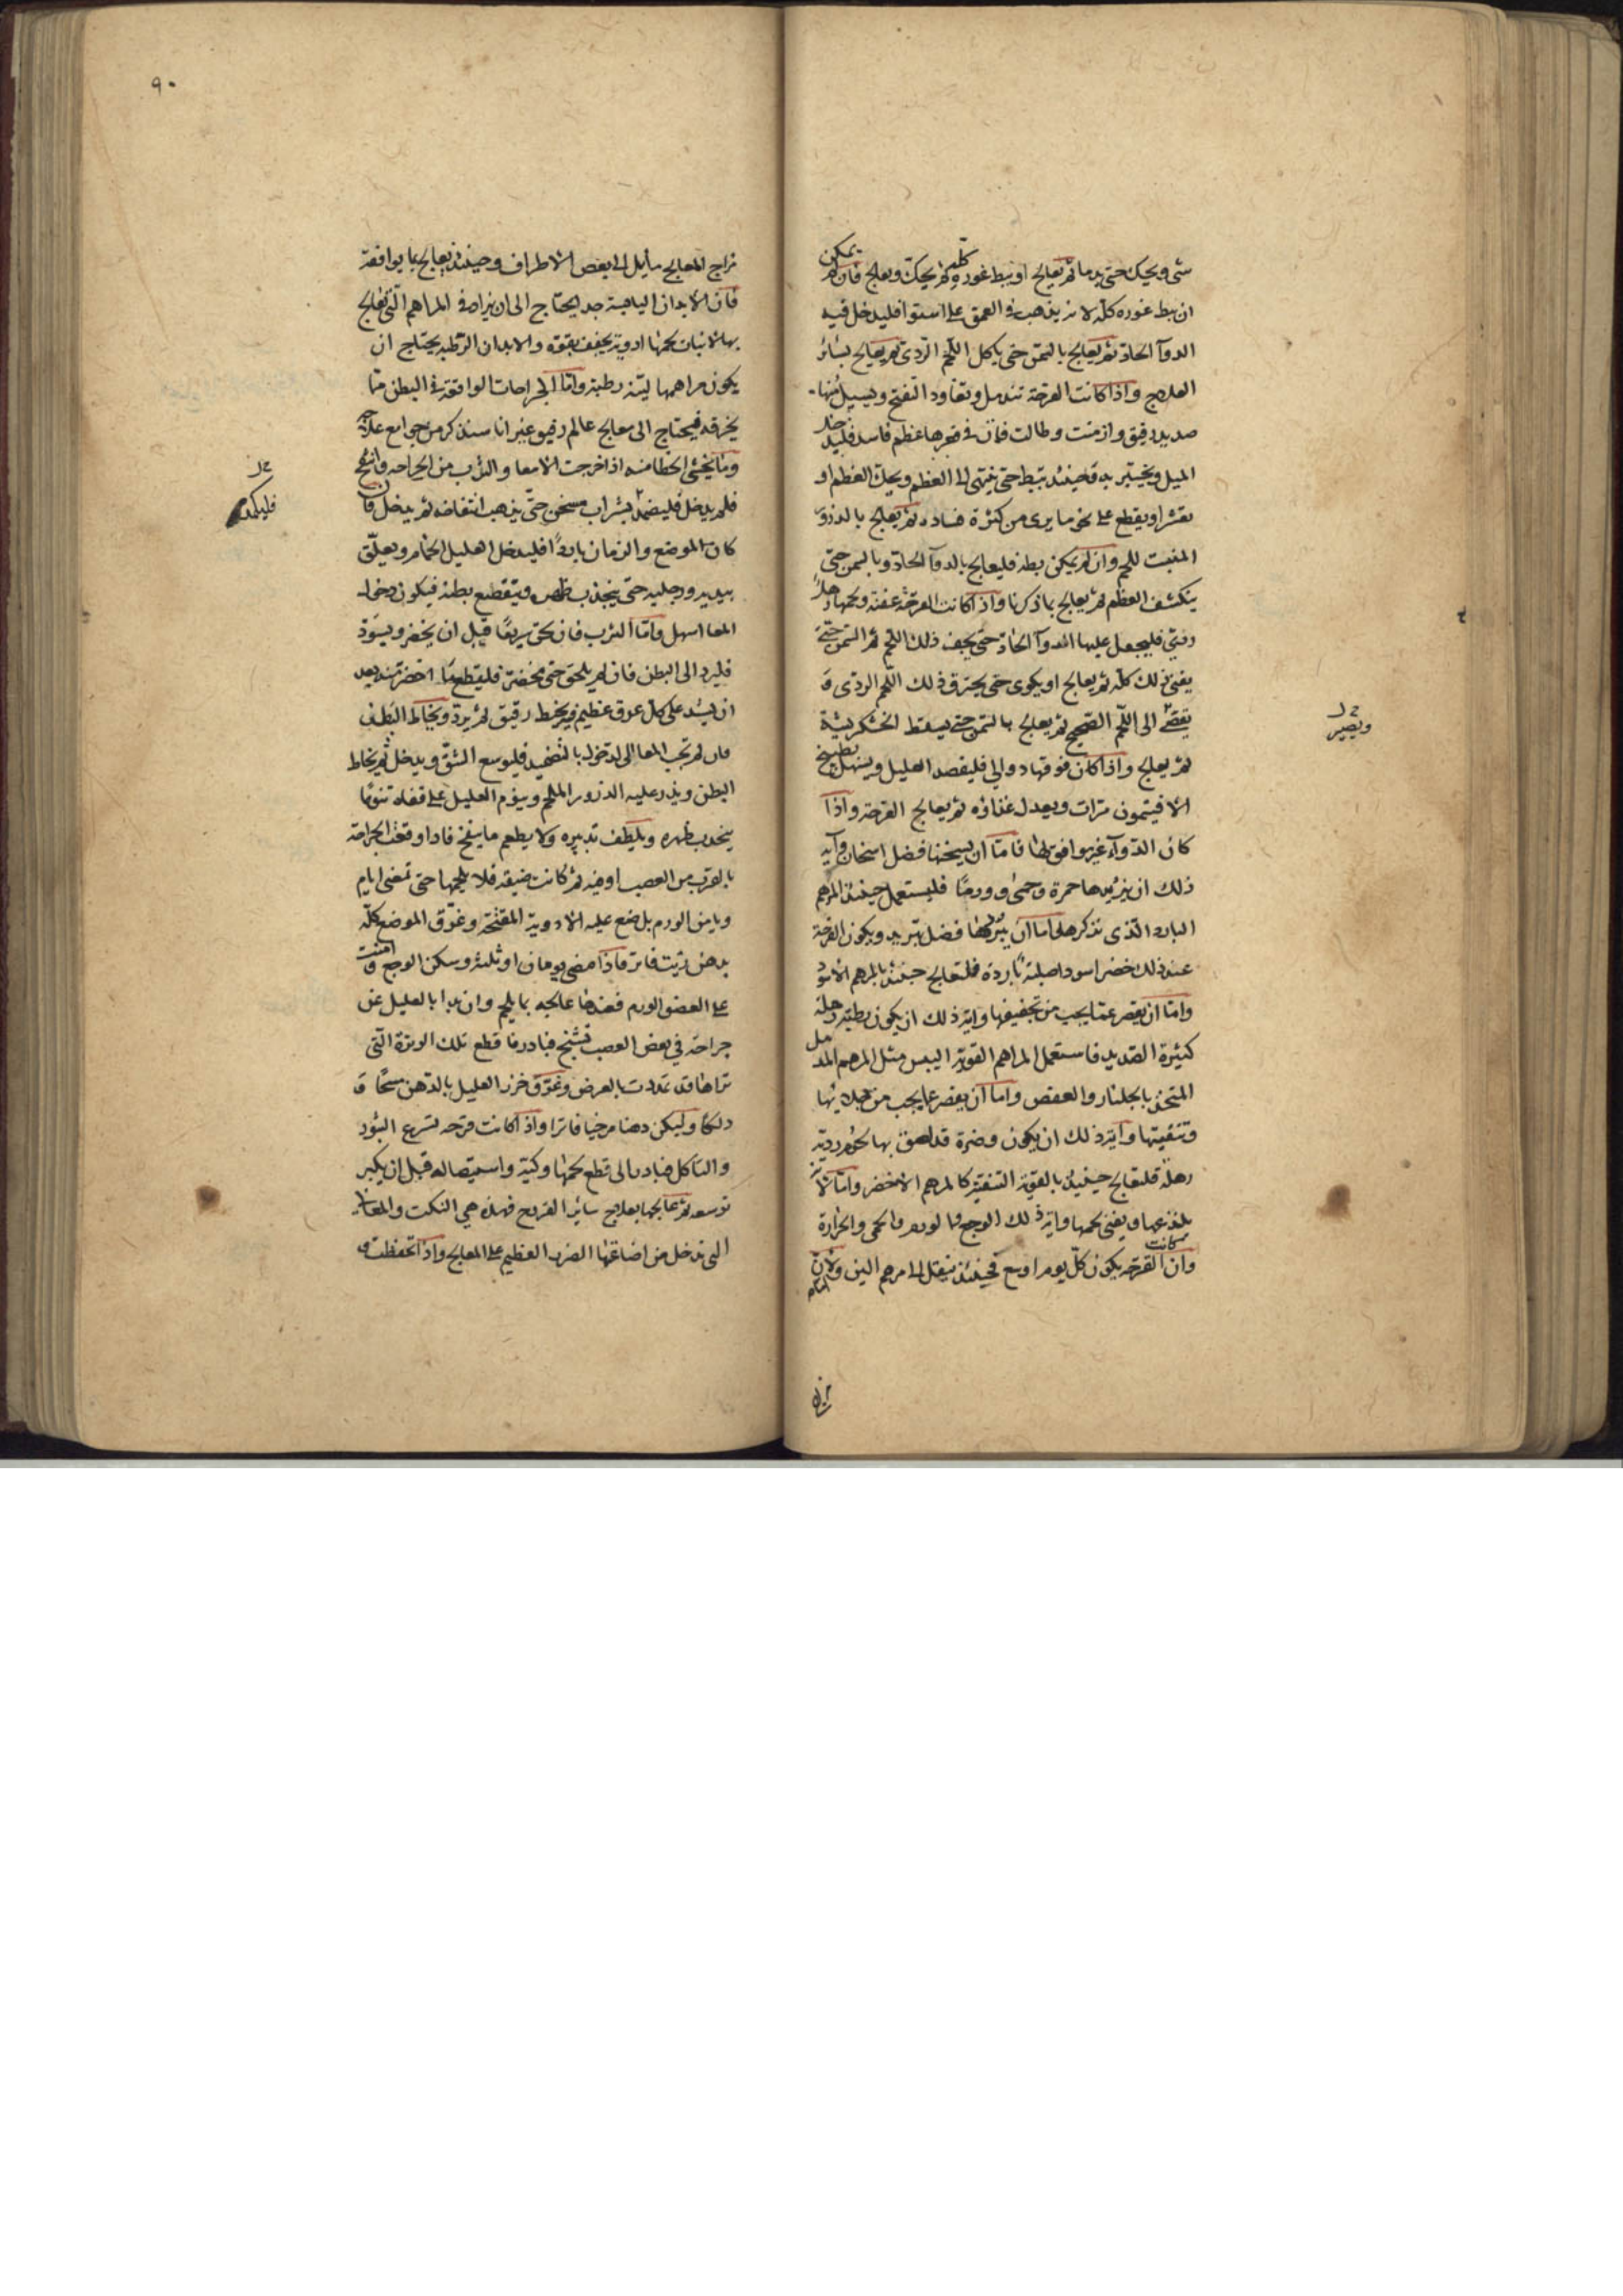 شى ويحك حتى يدما ثم يعالج او يبط غوره كله ثم يحك ويعالج فان لم يمكن
ان يبط غوره كله لانه يذهب فى العمق على استوا فليدخل فيه
الدوآ الحاد ثم يعالج بالسمن حتى ياكل اللحم الردى ثم يعالج بسائر
العلاج واذا كانت القرحة تندمل وتعاود التفتح ويسيل منها
صديد رقيق وازمنت وطالت فان فى قعرها عظم فاسد فليدخل
الميل ويختبر به فحينئذ تبط حتى ينتهى الى العظم ويحك العظم او
يقشر او يقطع على نحو ما يرى من كثرة فساده ثم يعالج بالذرور
المنبت للحم وان لم يمكن بطه فليعالج بالدوآ الحاد وبالسمن حتى
ينكشف العظم ثم يعالج بما ذكرنا واذا كانت القرحة عفنة ولحمها رهل
ردئ فليجعل عليها الدوآ الحاد حتى يجف ذلك اللحم ثم السمن حتى
يفنى ذلك كله ثم يعالج او يكوى حتى يحترق ذلك اللحم الردى و
يفضى الى اللحم الصحيح ثم يعالج بالسمن حتى يسقط الخشكريشة
ثم يعالج واذا كان فوقها دوالي فليفصد العليل ويسهل بطبيخ
الافيتمون مرات ويعدل غذاؤه ثم يعالج القرحة واذا
كان الدوآء غير موافق لها فاما ان يسخنها فضل اسخان وآية
ذلك ان يزيدها حمرة وحمى وورما فليستعمل حينئذ المرهم
البارد الذى نذكرها واما ان يبردها فضل تبريد ويكون القرحة
عند ذلك خضرا سودا صلبة باردة فلتعالج حينئذ بالمرهم الاسود
واما ان يقصر عما يجب من تجفيفها وآية ذلك ان يكون رطبة رهلة
كثيرة الصديد فاستعمل المراهم القوية اليبس مثل المرهم المدمل
المتخذ بالجلنار والعفص واما ان يقصر عما يجب من جلايها
وتنقيتها وآية ذلك ان يكون وضرة قد لصق بها لحوم ردية
رهلة فلتعالج حينئذ بالقوية التنقية كالمرهم الاخضر واما لانه
يلذعها ويفنى لحمها وآية ذلك الوجع والورم والحمى والحرارة
وان كانت القرحة يكون كل يوم اوسع فحينئذ ينقل الى مرهم الين ولان
ح ل
ويصير
مزاج
٩٠
مزاج المعالج مايل الى بعض الاطراف وحينئذ يعالج بما يوافقه
فان الابدان اليابسة جدا يحتاج الى ان يزاد فى المراهم التى تعالج
بها لانبات لحمها ادوية يجفف بقوة والابدان الرطبة يحتاج ان
يكون مراهمها لينة رطبة واما الجراحات الواقعة فى البطن مما
يخرقه فيحتاج الى معالج عالم رفيق غير انا سنذكر من جوامع علاجه
وما يخشى الخطا منه اذا خرجت الامعا والثرب من الجراحه وانتفخ
فلم يدخل فليضمد بشراب مسخن حتى يذهب انتفاخه ثم يدخل فان
كان الموضع والزمان باردا فليدخل العليل الحمام ويعلق
بيديه ورجليه حتى ينجذب ظهره ويتقطع بطنه فيكون دخول
المعا اسهل واما الثرب فان لحق سريعا قبل ان يخضر ويسود
فليرد الى البطن فان لم يلحق حتى يخضر فليقطع ما اخضر منه بعد
ان يشد على كل عرق عظيم فيه بخيط رقيق ثم يرد ويخاط البطن
فان لم تجب المعا الى الدخول بالتضميد فليوسع الشق ويدخل ثم يخاط
البطن ويذر عليه الذرور الملحم وينوم العليل على قفاه تنويما
ينحدب ظهره ويلطف تدبيره ولا يطعم ما ينفخ فاذا وقعت الجراحة
بالقرب من العصب او فيه ثم كانت ضيقه فلا يلحمها حتى تمضى ايام
ويامن الورم بل ضع عليه الادوية المفتحة وغرق الموضع كله
بدهن زيت فاتر فاذا مضى يومان او ثلثه وسكن الوجع وامنت
على العضو الورم فعندها عالجه بما يلحم وان بدا بالعليل عن
جراحة في بعض العصب تشنج فبادر فاقطع تلك الوترة التى
تراها قد تمددت بالعرض وغرق خرز العليل بالدهن مسحا و
دلكا وليكن دهنا مرخيا فاترا واذا كانت قرحه تسرع البثور
والتاكل فبادر الى قطع لحمها وكيه واستيصاله قبل ان يكبر
توسعه ثم عالجها بعلاج سائر القروح فهذه هي النكت والمعانى
التى تدخل من اضاعتها الضرر العظيم على المعالج واذا تحفظت
ح ل
فليكمد